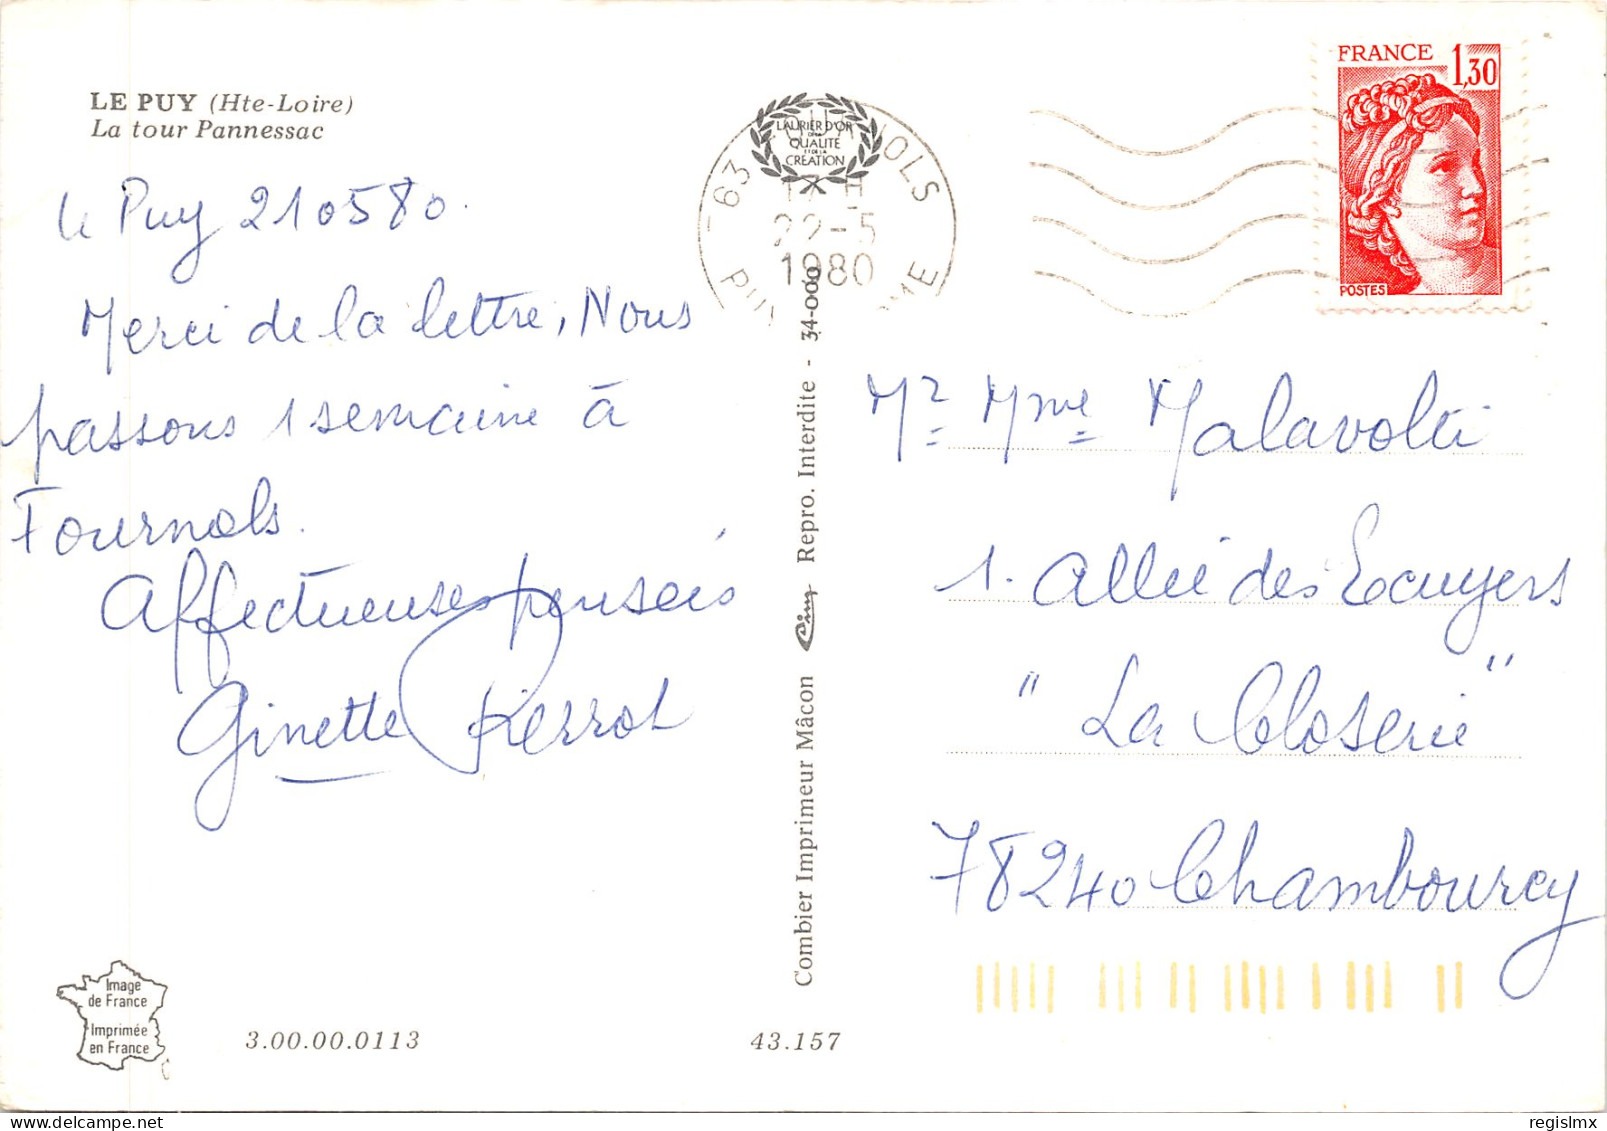 LE PUY (Hte-Loire)
La tour Pannessac
Le Puy 210580.
Merci de la lettre, Nous
passons 1 semaine à
Fournols.
Affectueuses pensées
Ginette Pierrot
LAURIER D'OR
DE LA
QUALITÉ
ET DE LA
CRÉATION
63
NOLS
H
22-5
1980
FRANCE 1,30
POSTES
Combier Imprimeur Mâcon Cim Repro. Interdite - 34-000
Mr Mme Malavolti
1. Allée des Ecuyers
"La Closerie"
78240 Chambourcy
Image
de France
Imprimée
en France
3.00.00.0113
43.157
regislmx
delcampe.net